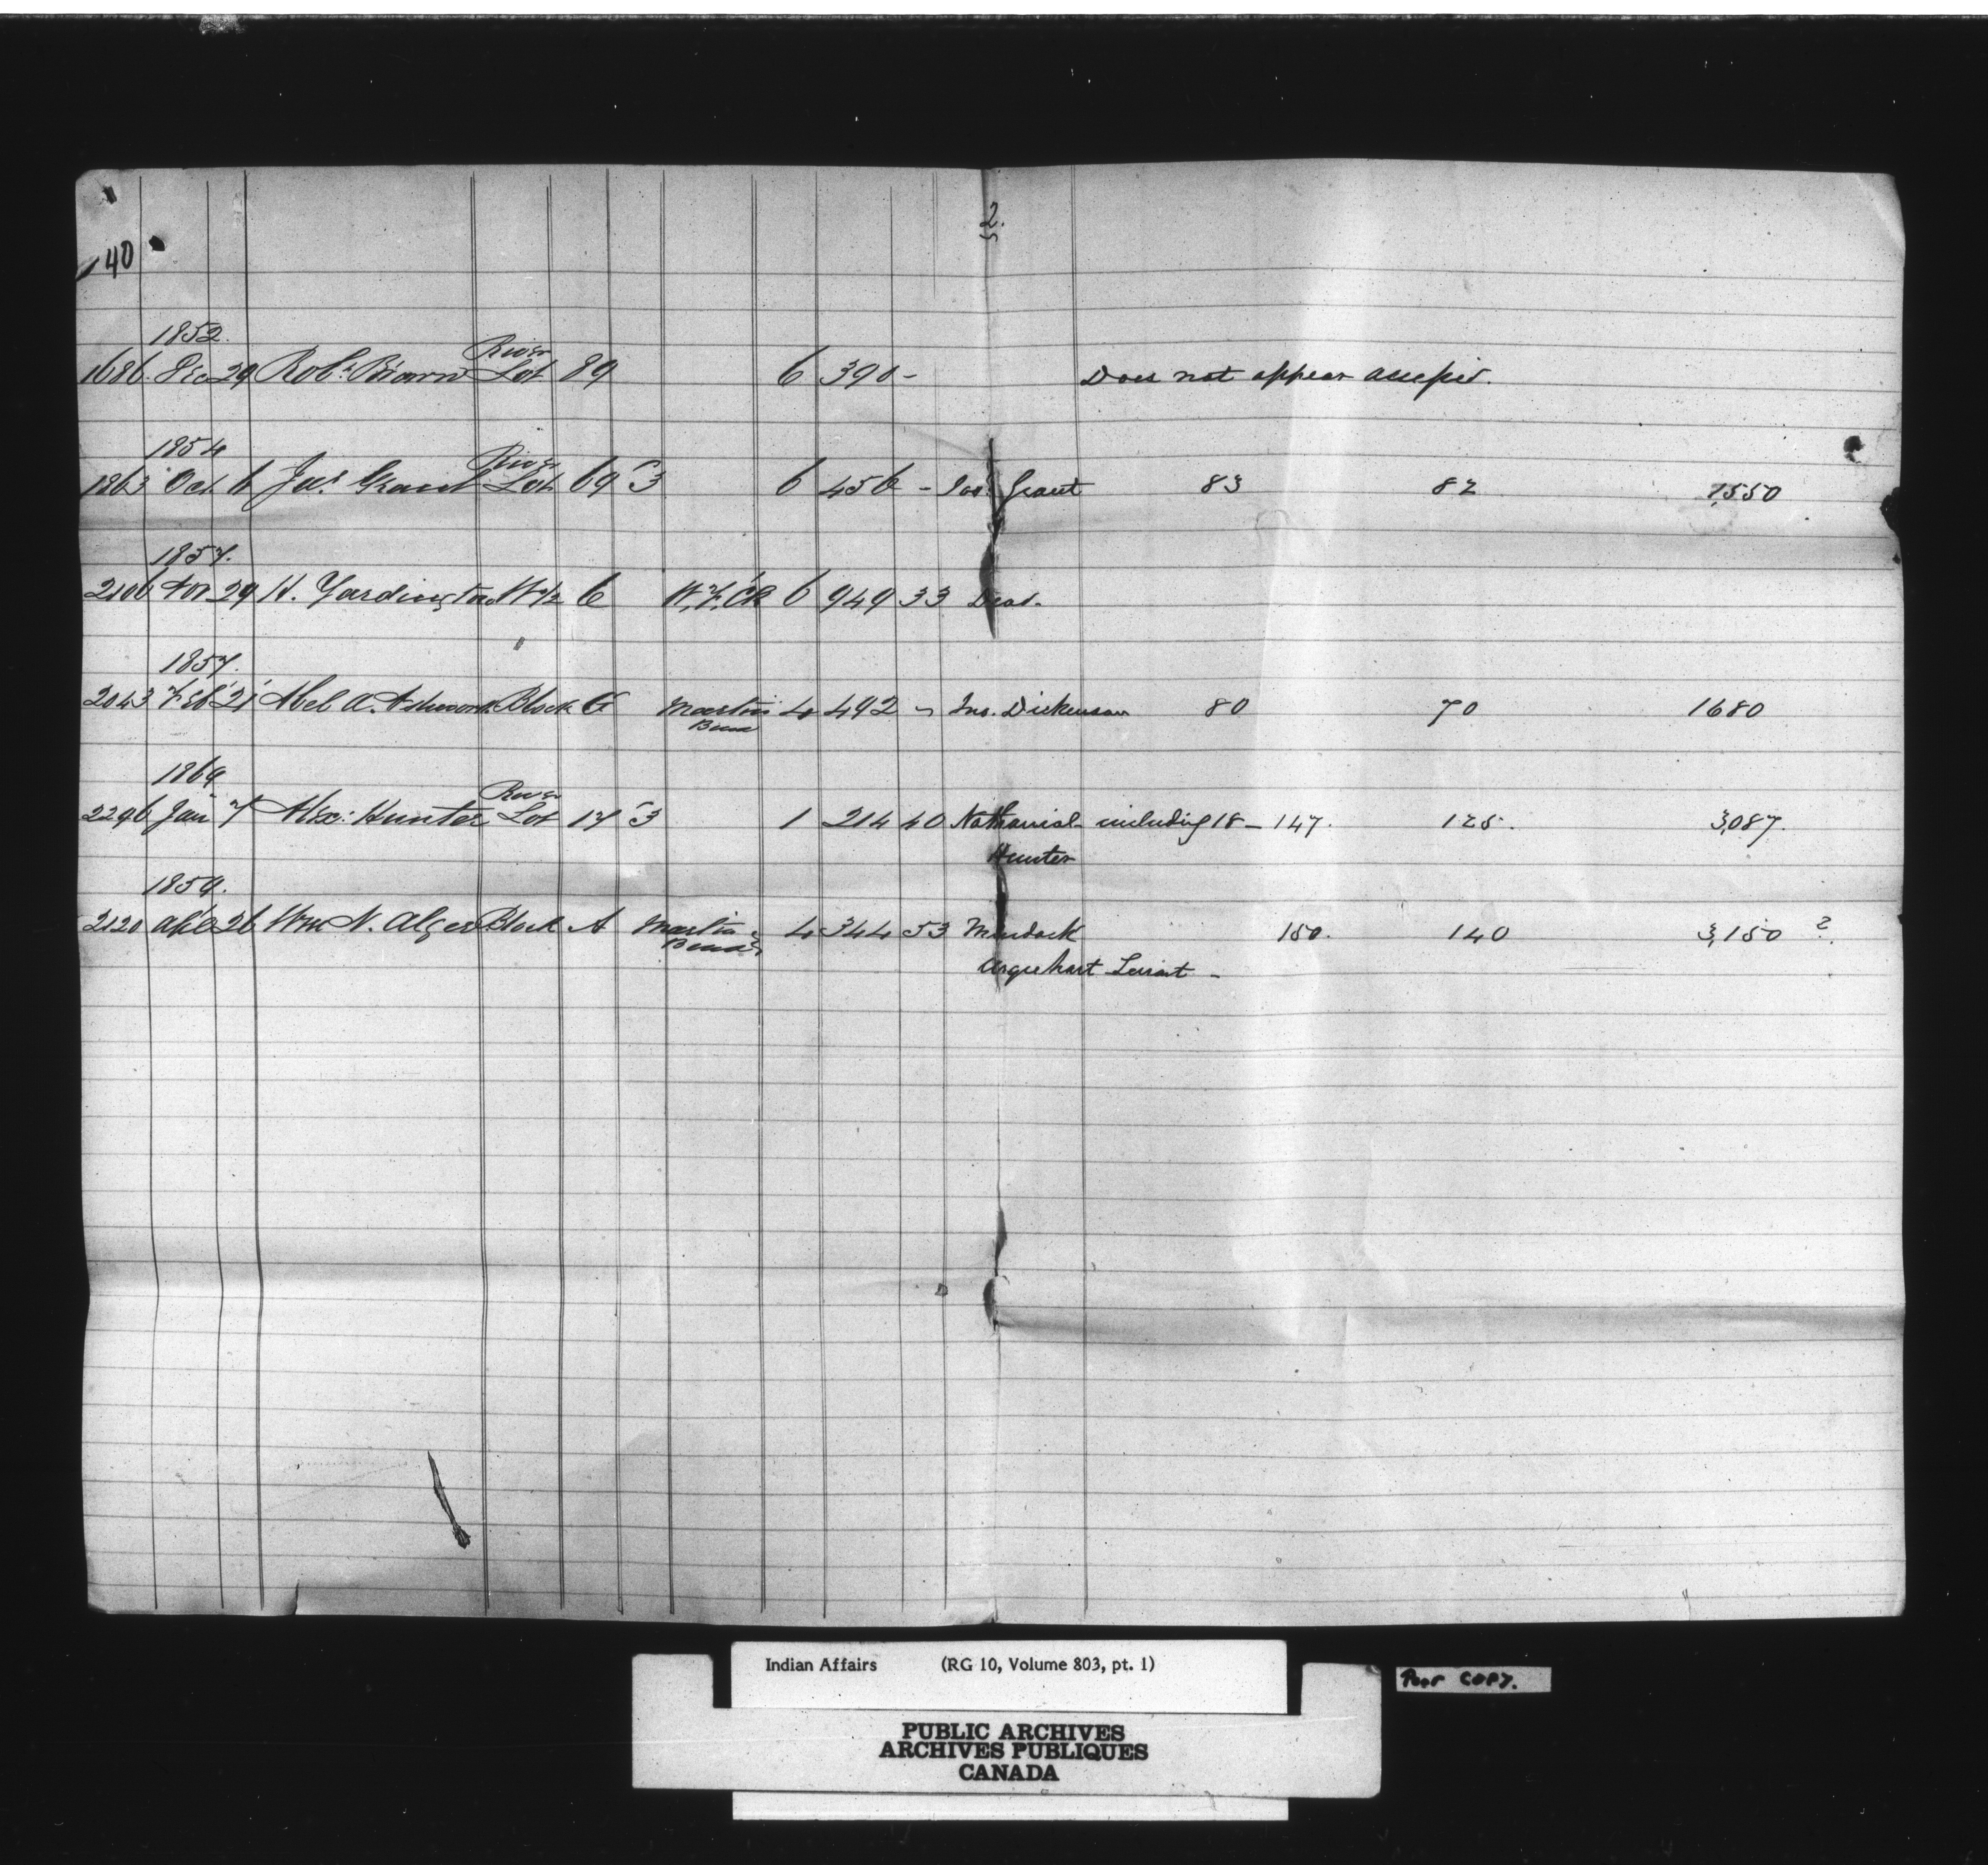 40
2.
1852.
1686. Dec 29 Robt. Brown River Lot 89 6 390 - Does not appear
1854
1863 Oct. 6 Jas. Grant River Lot 69 3 6 456 - Jas. Grant 83 82 1,550
1857.
2106 Nov 29 H. Yardington W 1/2 6 6 949 33
1857.
2043 Feb 21 Abel A. Block G Martin's Bend 4 492 - Jno. Dickenson 80 70 1680
"
1869
2296 Jan 7 Alex: Hunter River Lot 17 3 1 214 40 Nathaniel including 18 - 147. 125. 3,087.
Hunter
1859.
2120 Apl 26 Wm N. Alger Block A Martin's Bend 4 344 53 Murdock 150. 140 3,150 ?
Urquehart -
Indian Affairs (RG 10, Volume 803, pt. 1)
Poor COPY.
PUBLIC ARCHIVES
ARCHIVES PUBLIQUES
CANADA